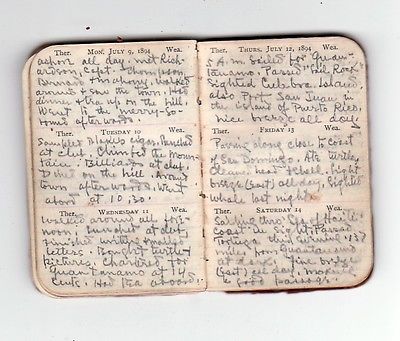 Ther. MON. JULY 9, 1894 Wea.
ashore all day. met Rich-
ardson, Capt. Thompson,
Bernard + mahony. walked
around + saw the town. Had
dinner + tea up on the hill.
Went to the merry-go-
rounds afterwards.
Ther. TUESDAY 10 Wea.
Sampled cigars. Lunched
at club. Climbed the Moun-
tain. Billiards at club.
Dined on the hill. Around
town afterwards. Went
aboard at 10.30.
Ther. WEDNESDAY 11 Wea.
Walked around all fore-
noon. Lunched at club.
Finished writing + mailed
letters. Bought turtle
pictures. Chartered for
Guantanamo at 14
cents. Had tea aboard.
Ther. THURS. JULY 12, 1894 Wea.
5 A.M. Sailed for Guan-
tanamo. Passed "Sail Rock"
Sighted Culebra Island
also Port San Juan on
the island of Puerto Rico.
nice breeze all day.
Ther. FRIDAY 13 Wea.
close to coast
of San Domingo. Ate turtle.
Cleaned head + shell. Light
breeze (East) all day. Sighted
whale last night.
Ther. SATURDAY 14 Wea.
Sailing thro'
coast in sight. Passed
Tortuga this evening. 137
miles from Guantanamo
at dark. Fine breeze
(East) all day. making
a good passage.